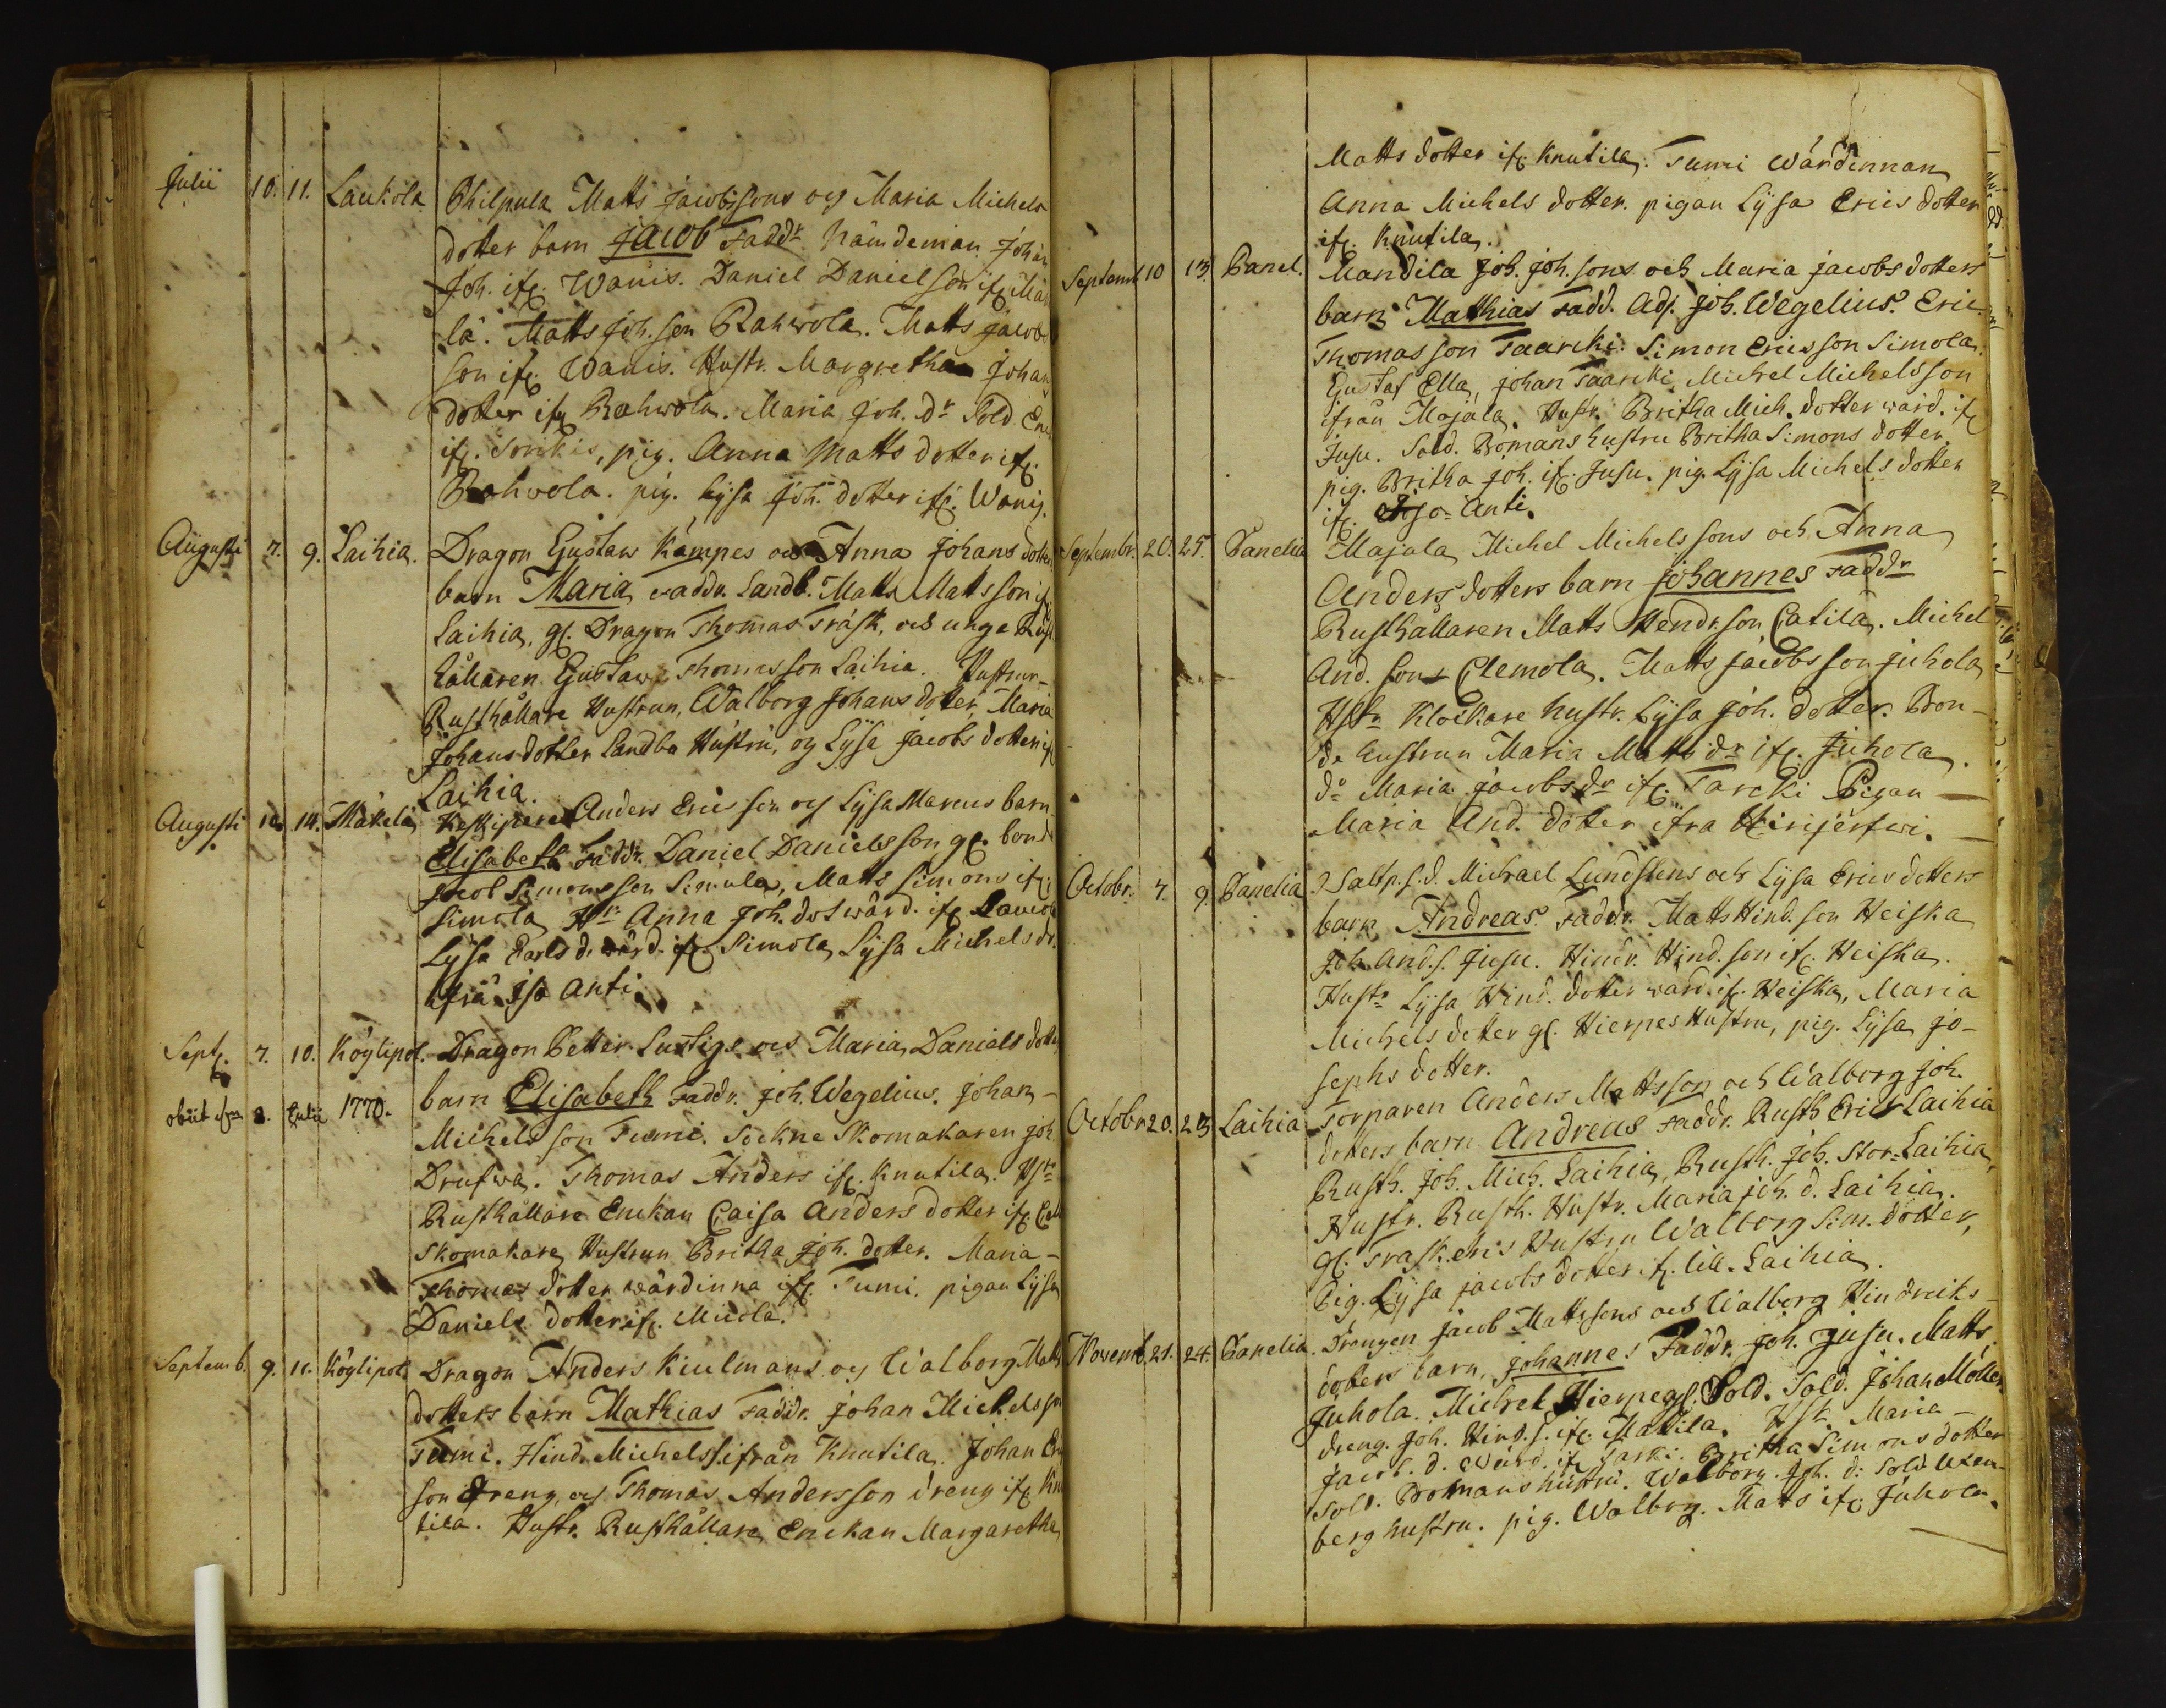 Julii 10. 11. Laukola Philpula Matts Jacobssons och Maria Michels
dotter barn Jacob Faddr. Nämdeman Johan
Joh. ifr. Wanis. Daniel Danielson ifr. Mä
lä. Matts Joh. son Rahwola. Matts Jacobs
son ifr. Wanis. Hustr. Margretha Johans
dotter ifr. Rahwola. Maria Joh. dr. Sold.
ifr. pig. Anna Matts dotter ifr.
Rahwola. pig. Lysa Joh. dotter ifr. Wanis.
Augusti 7. 9. Laihia. Dragon Gustaw Kämpes och Anna Johans dotter
barn Maria Faddr. Landb. Matts Mattsson ifr.
Laihia, gl. Dragon Thomas Träsk, och unge Rust
hållaren Gustaw Thomasson Laihia. Hustrur
Rusthållare Hustrun, Walborg Johans dotter, Maria
Johansdotter Landbo Hustru, och Lysa Jacobs dotter ifr.
Laihia.
Augusti 10. 14. Mäkelä Keskipere Anders Ericsson och Lysa Marcus barn
Elisabeta Faddr. Daniel Danielsson gl. bonde
Jacob Simonsson Simula, Matts Simons ifr.
Simola Hr. Anna Joh. dot. wärd. ifr. Lauco
Lysa Carls d. wärd. ifr. Simola, Lysa Michels dr.
ifrå Iso Anti.
Sept. 7. 10. Köylipol. Dragon Petter Lustigs och Maria Daniels dotte
obiit 2. Julii 1770. barn Elisabeth Faddr. Joh. Wegelius. Johan
Michels son Tumi. Sockne Skomakaren Joh.
Drufwa. Thomas Anders ifr. Knutila. Hstr.
Rusthållare Enckan Caisa Anders dotter ifr.
Skomakare Hustrun Britha Joh. dotter. Maria
Thomas dotter wärdinna ifr. Tumi. pigan Lysa
Daniels dotter ifr. Micola.
Septemb. 9. 11. Köylipol. Dragon Anders Kiulmans och Walborg Matts
dotters barn Mathias Faddr. Johan Michelsson
Tumi. Hind. Michelss. ifrån Knutila. Johan
son dreng, och Thomas Andersson dreng ifr. Knu
tila. Hustr. Rusthållare Enckan Margaretha
Matts dotter ifr. Knutila. Tumi Wärdinnan
Anna Michels dotter. pigan Lysa Erics dotter
ifr. Knutila.
Septemb 10 13. Panel. Mandila Joh. Joh. sons och Maria Jacobs dotters
barn Matthias Fadd. Adj. Joh. Wegelius. Eric
Thomas son Taarcki. Simon Ericsson Simola.
Gustaf Ella, Johan Taarcki, Michel Michelsson
ifrån Majala. Hustr. Britha Mich. dotter wärd. ifr.
Jusu. Sold. Bomans hustru Britha Simons dotter.
pig. Britha Joh. ifr. Jusu. pig. Lysa Michels dotter
ifr. Iso-Anti.
Septembr. 20. 25. Panelia Majala Michel Michelssons och Anna
Anders dotters barn Johannes Faddr
Rusthållaren Matts Hendr. son Catila. Michel
And. son Clemola. Matts Jacobsson Juhola
Hstr. Klockare hustr. Lysa Joh. dotter. Bon-
de hustrun Maria Matts dr. ifr. Juhola.
do Maria Jacobs dr. ifr. Tarcki Pigan
Maria And. dotter ifra Hirijerfwi.
Octobr. 7. 9. Panelia Michael Lundstens och Lysa Erics dotters
barn Andreas. Faddr. Matts Hind. son Heiska
Joh. And. s. Jusu. Hindr. Hind. son ifr. Heiska.
Hustr. Lysa Hind. dotter wärd. ifr. Heiska, Maria
Michels dotter gl. Hierpes Hustru, pig. Lysa Jo-
sephs dotter.
Octobr 20. 23 Laihia Torparen Anders Mattsson och Walborg Joh.
dotters barn Andreas Faddr. Rusth. Eric Laihia
Rusth. Joh. Mich. Laihia, Rusth. Joh. Stor-Laihia,
Hustr. Rusth. Hustr. Maria Joh. d. Laihia.
gl. Hustru Walborg Sim. dotter,
Pig. Lysa Jacobs dotter ifr. lill. Laihia.
Novemb. 21. 24. Panelia. Drengen Jacob Mattssons och Walborg Hindricks
dotters barn, Johannes Faddr. Joh. Jusu. Matts
Juhola. Michel Hierpe gl. Sold. Sold. Johan Möller
dreng. Joh. Hind. s. ifr. Mattila. Hstr. Maria
Jacob. d. Wärd. ifr. Tarki. Britha Simons dotter
Sold. Bromans hustru. Walborg Joh. d: Sold
berg hustru. pig. Walbog. Matts ifr. Juhola.